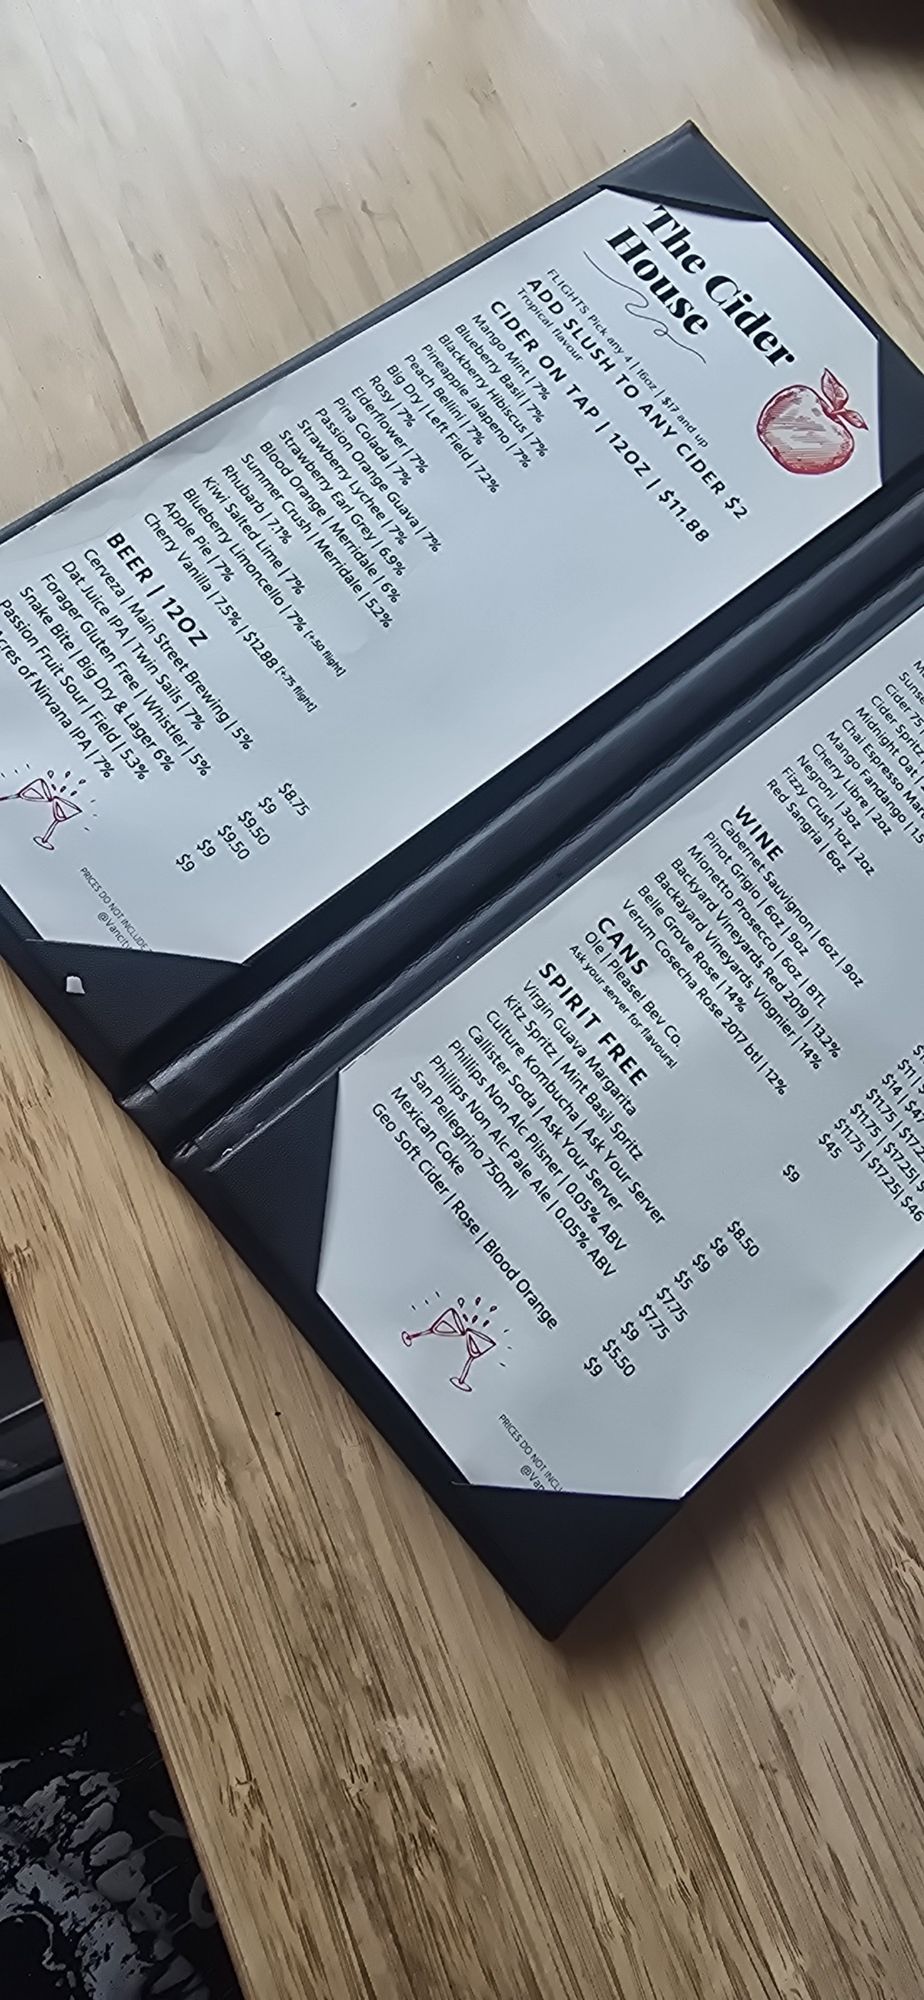 The Cider
House
FLIGHTS Pick any 4 | 16oz | $17 and up
ADD SLUSH TO ANY CIDER $2
Tropical flavour
CIDER ON TAP | 12OZ | $11.88
Mango Mint | 7%
Blueberry Basil | 7%
Blackberry Hibiscus | 7%
Pineapple Jalapeno | 7%
Peach Bellini | 7%
Big Dry | Left Field | 7.2%
Rosy | 7%
Elderflower | 7%
Pina Colada | 7%
Passion Orange Guava | 7%
Strawberry Lychee | 7%
Strawberry Earl Grey | 6.9%
Blood Orange | Merridale | 6%
Summer Crush | Merridale | 5.2%
Rhubarb | 7.1%
Kiwi Salted Lime | 7%
Blueberry Limoncello | 7% [+.50 flight]
Apple Pie | 7%
Cherry Vanilla | 7.5% | $12.88 [+.75 flight]
BEER | 12OZ
Cerveza | Main Street Brewing | 5% $8.75
Dat Juice IPA | Twin Sails | 7% $9
Forager Gluten Free | Whistler | 5% $9.50
Snake Bite | Big Dry & Lager 6% $9.50
Passion Fruit Sour | Field | 5.3% $9
cres of Nirvana IPA | 7% $9
PRICES DO NOT INCLUDE
@Vancit
Suns
Cider 75
Cider Spritz
Midnight Oat
Chai Espresso Mar
Mango Fandango | 1.5
Cherry Libre | 2oz
Negroni | 3oz
Fizzy Crush 1oz | 2oz
Red Sangria | 6oz
WINE
Cabernet Sauvignon | 6oz | 9oz
Pinot Grigio | 6oz | 9oz
Mionetto Prosecco | 6oz | BTL $14 | $4
Backyard Vineyards Red 2019 | 13.2% $11.75 | $17.25
Backayard Vineyards Viognier | 14% $11.75 | $17.25 | $
Belle Grove Rose | 14% $11.75 | $17.25 | $46
Verum Cosecha Rose 2017 btl | 12% $45
CANS
Ole | Please! Bev Co. $9
Ask your server for flavours!
SPIRIT FREE
Virgin Guava Margarita $8.50
Kitz Spritz | Mint Basil Spritz $8
Culture Kombucha | Ask Your Server $9
Callister Soda | Ask Your Server $5
Phillips Non Alc Pilsner | 0.05% ABV $7.75
Phillips Non Alc Pale Ale | 0.05% ABV $7.75
San Pellegrino 750ml $9
Mexican Coke $5.50
Geo Soft Cider | Rose | Blood Orange $9
PRICES DO NOT INCLU
@Van